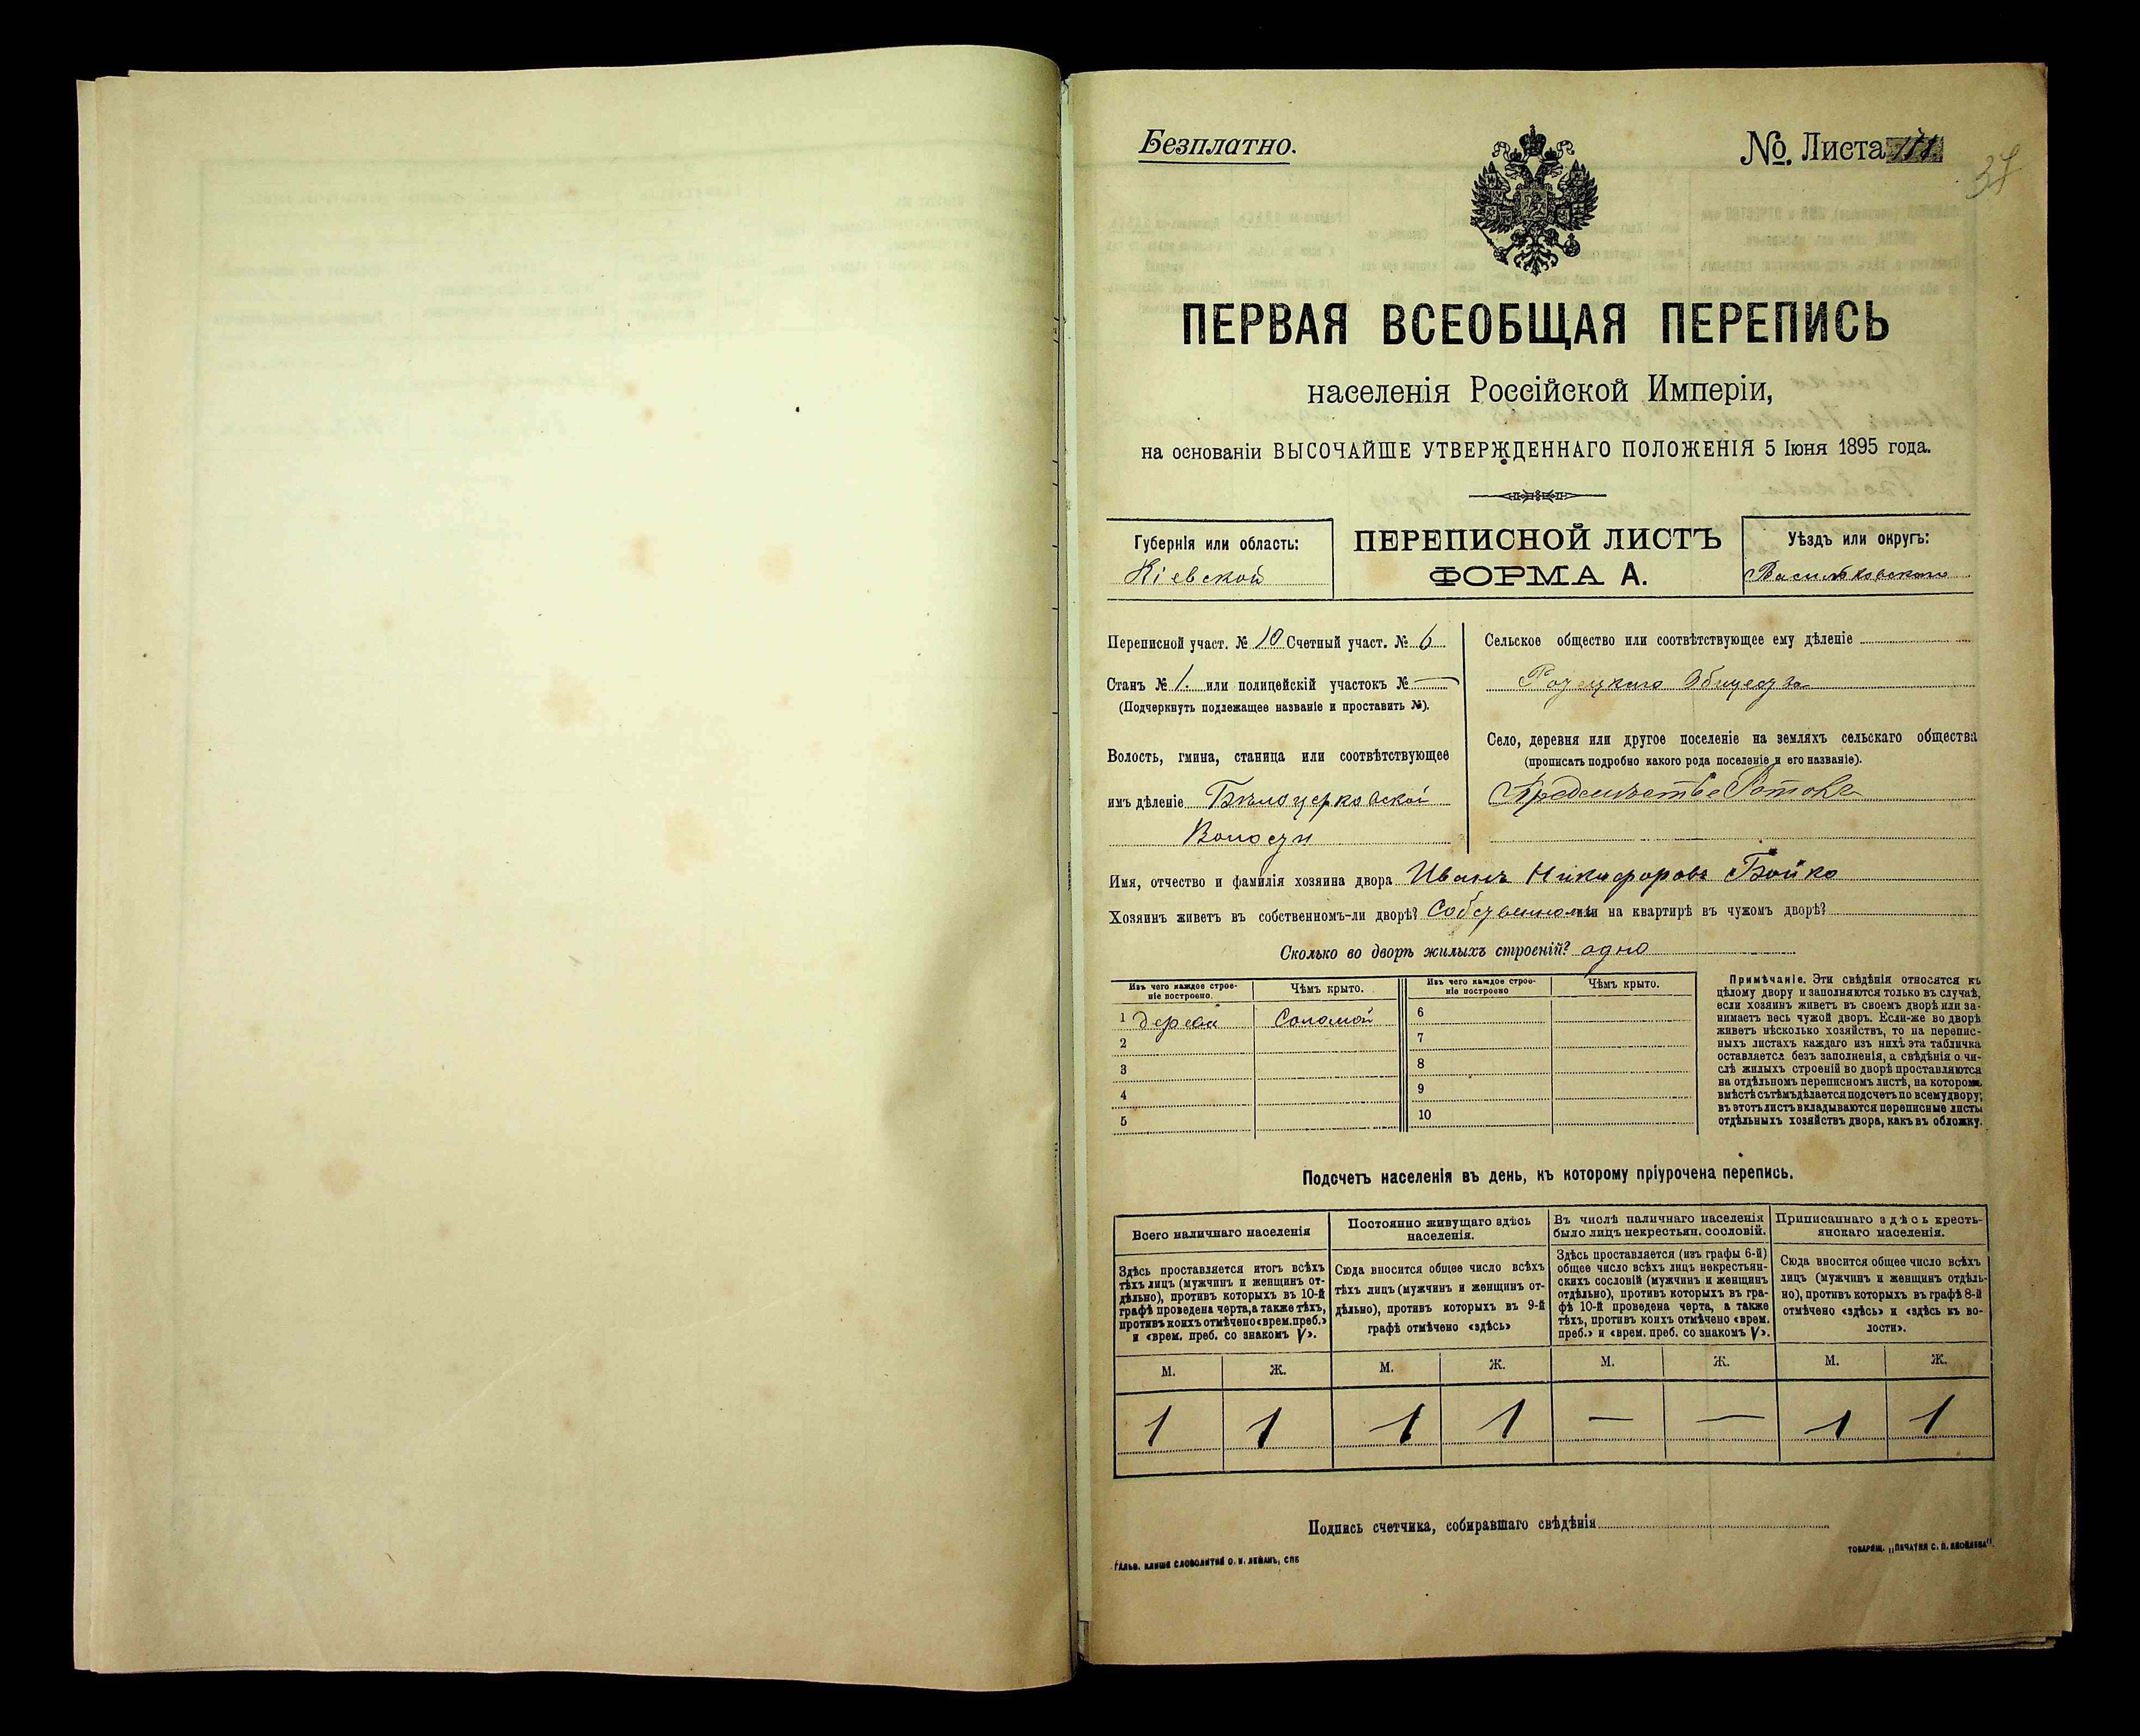 Безплатно.
№. Листа
37
ПЕРВАЯ ВСЕОБЩАЯ ПЕРЕПИСЬ
населенія Россійской Имперіи,
на основаніи ВЫСОЧАЙШЕ УТВЕРЖДЕННАГО ПОЛОЖЕНІЯ 5 Іюня 1895 года.
Губернія или область:
Кіевской
ПЕРЕПИСНОЙ ЛИСТЪ
ФОРМА А.
Уѣздъ или округъ:
Васильковскаго
Переписной участ. № 10 Счетный участ. № 6
Станъ № 1. или полицейскій участокъ № —
(Подчеркнуть подлежащее названіе и проставить №).
Волость, гмина, станица или соотвѣтствующее
имъ дѣленіе Бѣлоцерковской
Волости
Сельское общество или соотвѣтствующее ему дѣленіе
Общества
Село, деревня или другое поселеніе на земляхъ сельскаго общества
(прописать подробно какого рода поселеніе и его названіе).
Предмѣстье Ротокъ
Имя, отчество и фамилія хозяина двора Иванъ Никифоровъ Бойко
Хозяинъ живетъ въ собственномъ-ли дворѣ? Собственномъ или на квартирѣ въ чужомъ дворѣ?
Сколько во дворѣ жилыхъ строеній? одно
Изъ чего каждое строе-
ніе построено.
Чѣмъ крыто.
Изъ чего каждое строе-
ніе построено
Чѣмъ крыто.
1 дерева Соломой 6
2 7
3 8
4 9
5 10
Примѣчаніе. Эти свѣдѣнія относятся къ
цѣлому двору и заполняются только въ случаѣ,
если хозяинъ живетъ въ своемъ дворѣ или за-
нимаетъ весь чужой дворъ. Если-же во дворѣ
живетъ нѣсколько хозяйствъ, то на перепис-
ныхъ листахъ каждаго изъ нихъ эта табличка
оставляется безъ заполненія, а свѣдѣнія о чи-
слѣ жилыхъ строеній во дворѣ проставляются
на отдѣльномъ переписномъ листѣ, на которомъ
вмѣстѣ съ тѣмъ дѣлается подсчетъ по всему двору;
въ этотъ листъ вкладываются переписные листы
отдѣльныхъ хозяйствъ двора, какъ въ обложку.
Подсчетъ населенія въ день, къ которому пріурочена перепись.
Всего наличнаго населенія
Постоянно живущаго здѣсь
населенія.
Въ числѣ наличнаго населенія
было лицъ некрестьян. сословій.
Приписаннаго здѣсь кресть-
янскаго населенія.
Здѣсь проставляется итогъ всѣхъ
тѣхъ лицъ (мужчинъ и женщинъ от-
дѣльно), противъ которыхъ въ 10-й
графѣ проведена черта, а также тѣхъ,
противъ коихъ отмѣчено «врем. преб.»
и «врем. преб. со знакомъ V».
Сюда вносится общее число всѣхъ
тѣхъ лицъ (мужчинъ и женщинъ от-
дѣльно), противъ которыхъ въ 9-й
графѣ отмѣчено «здѣсь»
Здѣсь проставляется (изъ графы 6-й)
общее число всѣхъ лицъ некрестьян-
скихъ сословій (мужчинъ и женщинъ
отдѣльно), противъ которыхъ въ гра-
фѣ 10-й проведена черта, а также
тѣхъ, противъ коихъ отмѣчено «врем.
преб.» и «врем. преб. со знакомъ V».
Сюда вносится общее число всѣхъ
лицъ (мужчинъ и женщинъ отдѣль-
но), противъ которыхъ въ графѣ 8-й
отмѣчено «здѣсь» и «здѣсь къ во-
лости».
М. Ж. М. Ж. М. Ж. М. Ж.
1 1 1 1 — — 1 1
Подпись счетчика, собиравшаго свѣдѣнія
ГАЛЬВ. КЛИШЕ СЛОВОЛИТНИ О. И. ЛЕМАНЪ, СПБ
ТОВАРИЩ. „ПЕЧАТНЯ С. П. ЯКОВЛЕВА".